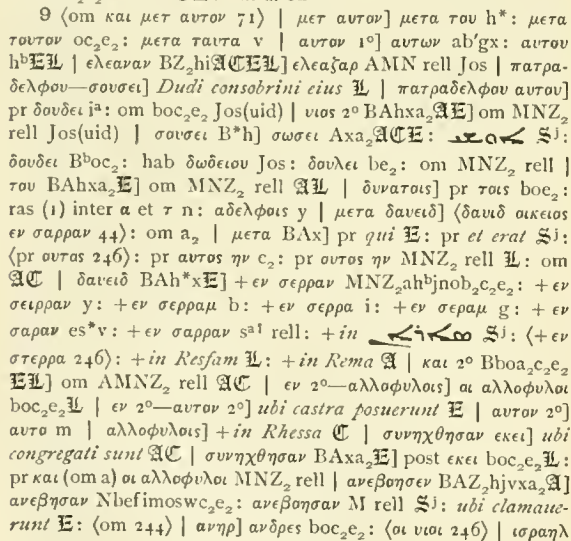 9 ⟨om και μετ αυτον 71⟩ | μετ αυτον] μετα του h*: μετα
τουτον oc₂e₂: μετα ταυτα v | αυτον 1º] αυτων ab′gx: αυτου
hᵇ𝕰𝕷 | ελεαναν BZ₂hi𝕬𝕮𝕰𝕷] ελεαζαρ AMN rell Jos | πατρα-
δελφου—σουσει] Dudi consobrini eius 𝕷 | πατραδελφου αυτου]
pr δουδει iᵃ: om boc₂e₂ Jos(uid) | υιος 2º BAhxa₂𝕬𝕰] om MNZ₂
rell Jos(uid) | σουσει B*h] σωσει Axa₂𝕬𝕮𝕰: 𝕾ʲ:
δουδει Bᵇoc₂: hab δωδειου Jos: δουλει be₂: om MNZ₂ rell |
του BAhxa₂𝕰] om MNZ₂ rell 𝕬𝕷 | δυνατοις] pr τοις boe₂:
ras (1) inter α et τ n: αδελφοις y | μετα δαυειδ] ⟨δαυιδ οικειος
εν σαρραν 44⟩: om a₂ | μετα BAx] pr qui 𝕰: pr et erat 𝕾ʲ:
⟨pr ουτας 246⟩: pr αυτος ην c₂: pr ουτος ην MNZ₂ rell 𝕷: om
𝕬𝕮 | δαυειδ BAh*x𝕰] + εν σερραν MNZ₂ahᵇjnob₂c₂e₂: + εν
σειρραν y: + εν σερραμ b: + εν σερρα i: + εν σεραμ g: + εν
σαραν es*v: + εν σαρραν sᵃ¹ rell: + in 𝕾ʲ: ⟨+ εν
στερρα 246⟩: + in Resfam 𝕷: + in Rema 𝕬 | και 2º Bboa₂c₂e₂
𝕰𝕷] om AMNZ₂ rell 𝕬𝕮 | εν 2º—αλλοφυλοις] οι αλλοφυλοι
boc₂e₂𝕷 | εν 2º—αυτον 2º] ubi castra posuerunt 𝕰 | αυτον 2º]
αυτο m | αλλοφυλοις] + in Rhessa 𝕮 | συνηχθησαν εκει] ubi
congregati sunt 𝕬𝕮 | συνηχθησαν BAxa₂𝕰] post εκει boc₂e₂𝕷:
pr και (om a) οι αλλοφυλοι MNZ₂ rell | ανεβοησεν BAZ₂hjvxa₂𝕬]
ανεβησαν Nbefimoswc₂e₂: ανεβοησαν M rell 𝕾ʲ: ubi clamaue-
runt 𝕰: ⟨om 244⟩ | ανηρ] ανδρες boc₂e₂: ⟨οι υιοι 246⟩ | ισραηλ